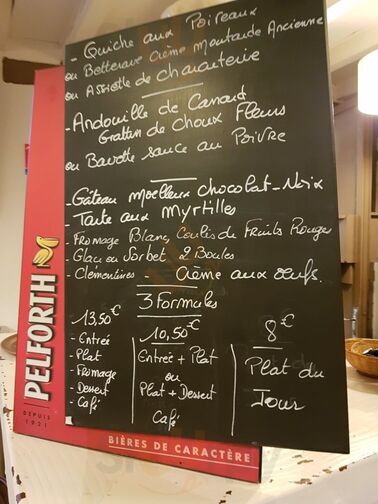 - Quiche aux Poireaux
ou Betterave Crème Moutarde Ancienne
ou Assiette de Charcuterie
- Andouille de Canard
Gratin de Choux Fleurs
ou Bavette sauce au Poivre
- Gâteau Moelleux Chocolat-Noix
- Tarte aux Myrtilles
- Fromage Blanc, Coulis de Fruits Rouges
- Glace ou Sorbet 2 Boules
- Clémentines - Crème aux œufs.
3 Formules
13,50€
- Entrée
- Plat
- Fromage
- Dessert
- Café
10,50€
Entrée + Plat
ou
Plat + Dessert
Café
8€
Plat du
Jour
PELFORTH
DEPUIS
1921
BIÈRES DE CARACTÈRE